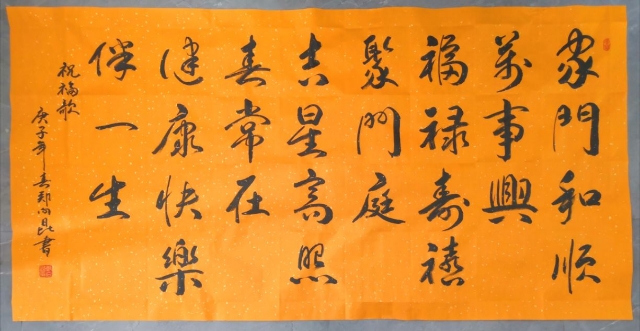 家門和順
萬事興
福禄壽禧
聚門庭
吉星高照
春常在
健康快樂
伴一生
祝福歌
庚子年春郑向昆書